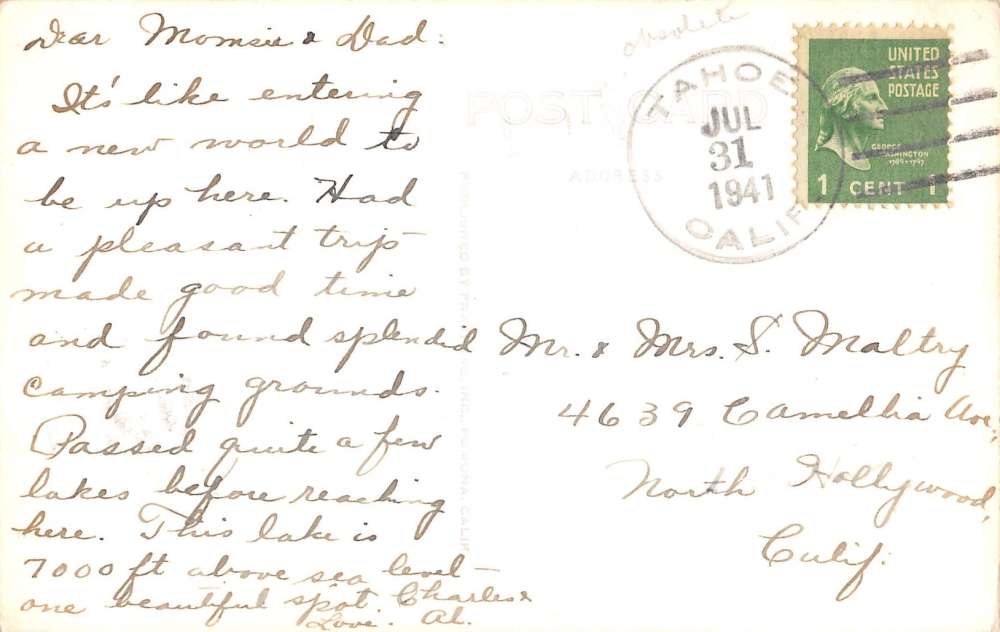 Dear Momsie & Dad:
It's like entering
a new world to
be up here. Had
a pleasant trip
made good time
and found splendid
camping grounds.
Passed quite a few
lakes before reaching
here. This lake is
7000 ft above sea level –
one beautiful spot.
Love. Charles &
Al.
obsolete
POST CARD
ADDRESS
TAHOE
JUL
31
1941
CALIF.
UNITED
STATES
POSTAGE
GEORGE
WASHINGTON
1789-1797
1 CENT 1
Mr. & Mrs. S. Maltry
4639 Camellia Ave.,
North Hollywood,
Calif.
INC., POMONA, CALIF